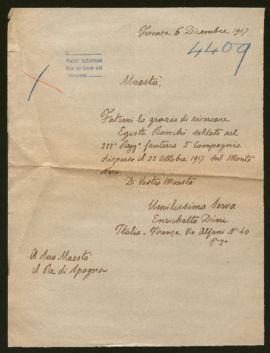 Firenze 6 Dicembre 1917
4409
Maestà,
Fatemi la grazia di ricercare
Egisto Ronchi soldato nel
222° Regg° fanteria 2ª Compagnia
disperso il 22 Ottobre 1917 sul Monte
Nero
Di Vostra Maestà
Umilissima Serva
Enrichetta Dini
Italia - Firenze Via Alfani N° 40
A Sua Maestà
il Re di Spagna